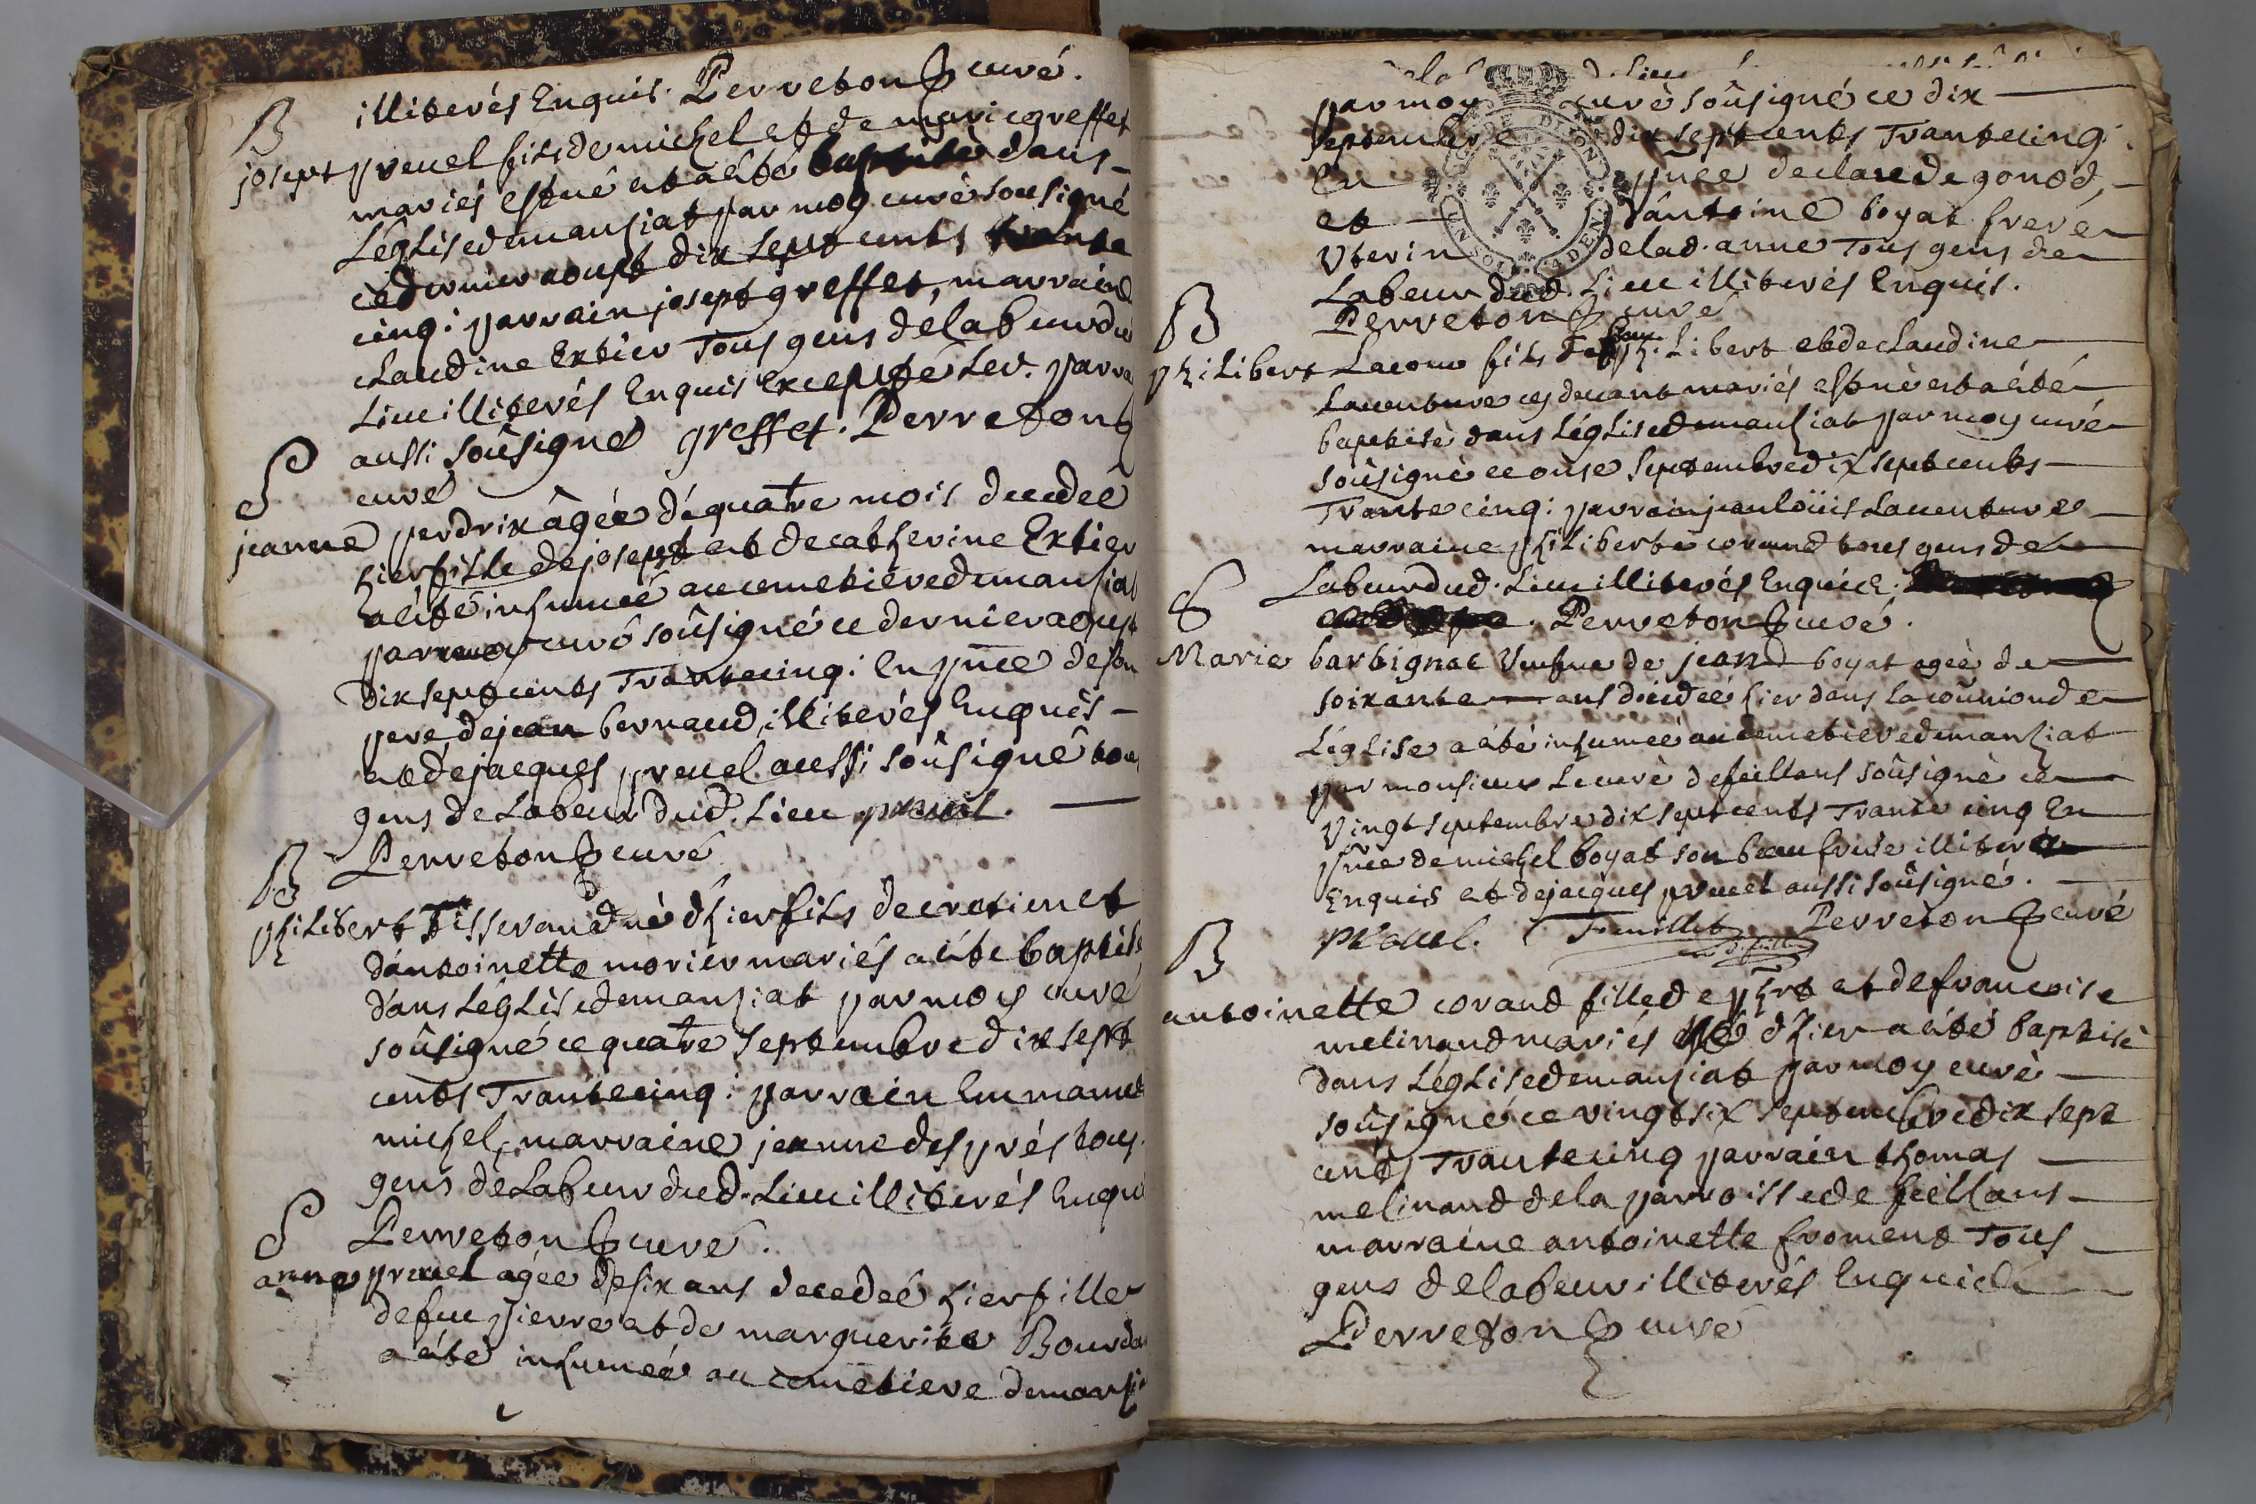 illiterés Enquis. Perreton curé.
B
josept preuel fils de michel et de marie greffet
mariés est né et a été baptisé dans
L'église de manziat par moy curé soûsigné
ce dernier aoust dix sept cents trante
cinq: parrain josept greffet, marraine
claudine Extier Tous gens de labeur dud
Lieu illiterés Enquis Excepté Led. parra
aussi soûsigné greffet. Perreton
curé
S
jeanne perdrix âgée de quatre mois decedeé
hier fille de josept et de catherine Extier
a été inhumeé au cemetiere de manziat
par moy curé soûsigné ce dernier aoust
dix sept cents Trante cinq: En pnce de son
pere, de jean bernaud, illiterés Enquis
et de jacques preuel aussi soûsigné tous
gens de Labeur dud. Lieu preuel.
Perreton curé
B
philibert Tisserand né d'hier fils de cretien et
d'antoinette morier mariés a été baptisé
dans L'église de manziat par moy curé
soûsigné ce quatre septembre dix sept
cents Trante cinq: parrain Emmanuel
michel, marraine jeanne després tous
gens de Labeur dud. Lieu illiterés Enqui
Perreton curé.
S
anne preuel agée de six ans decedeé hier fille
de feu pierre et de marguerite Bourdon
a été inhumeé au cemetiere de manzia
par moy curé soûsigné ce dix
septembre dix sept cents Trante cinq:
En pnce de claude gonod,
et d'antoine boyat frere
Vterin de lad. anne Tous gens de
Labeur dud. Lieu illiterés Enquis.
Perreton curé
B
philibert Lacour fils de feu philibert et de claudine
Lauenture cy deuant mariés est né et a été
baptisé dans L'église de manziat par moy curé
soûsigné ce onse septembre dix sept cents
Trante cinq: parrain jean loüis Lauenture
marraine philiberte corand tous gens de
Labeur dud. Lieu illiterés Enquis.
Perreton curé.
S
Marie barbignac Veufue de jean boyat ageé de
soixante ans decedeé hier dans la comunion de
L'église a été inhumeé au cemetiere de manziat
par monsieur Le curé de feillans soûsigné ce
Vingt septembre dix sept cents Trante cinq En
pnce de michel boyat son beau frere illiteré
Enquis et de jacques preuel aussi soûsigné.
preuel. Feuillet Perreton curé
B
antoinette corand fille de phrt et de francoise
melinand mariés née d'hier a été baptisé
dans L'église de manziat par moy curé
soûsigné ce vingt six septembre dix sept
cents Trante cinq parrain thomas
melinand de la parroisse de feillans
marraine antoinette froment Tous
gens de labeur illiterés Enquis
Perreton curé